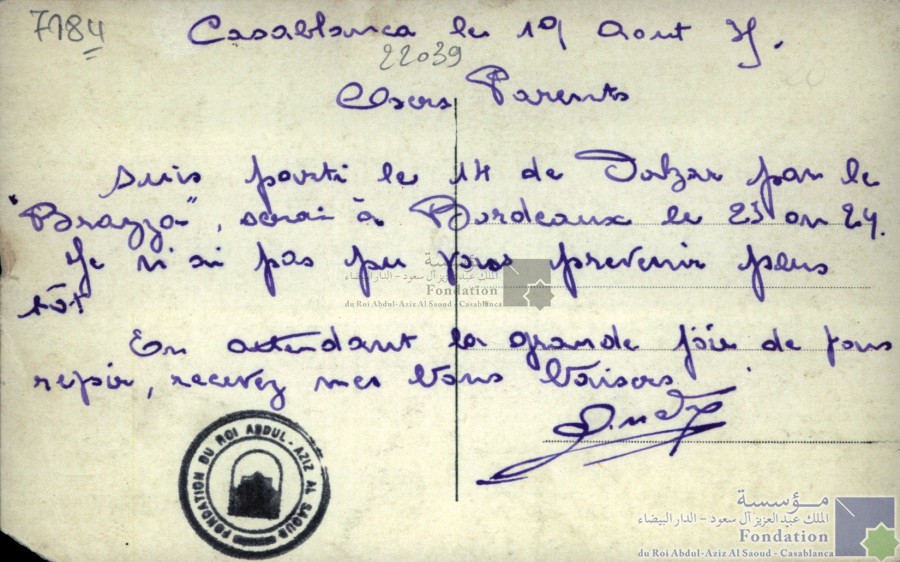 7184
Casablanca le 19 Aout 35.
22039
Chers Parents
Suis parti le 14 de Dakar par le
"Brazza", serai à Bordeaux le 23 ou 24.
Je n'ai pas pu vous prevenir plus
tôt
En attendant la grande joie de vous
revoir, recevez mes bons baisers
André
FONDATION DU ROI ABDUL-AZIZ AL SAOUD
مؤسسة
الملك عبد العزيز آل سعود - الدار البيضاء
Fondation
du Roi Abdul-Aziz Al Saoud - Casablanca
مؤسسة
الملك عبد العزيز آل سعود - الدار البيضاء
Fondation
du Roi Abdul-Aziz Al Saoud - Casablanca